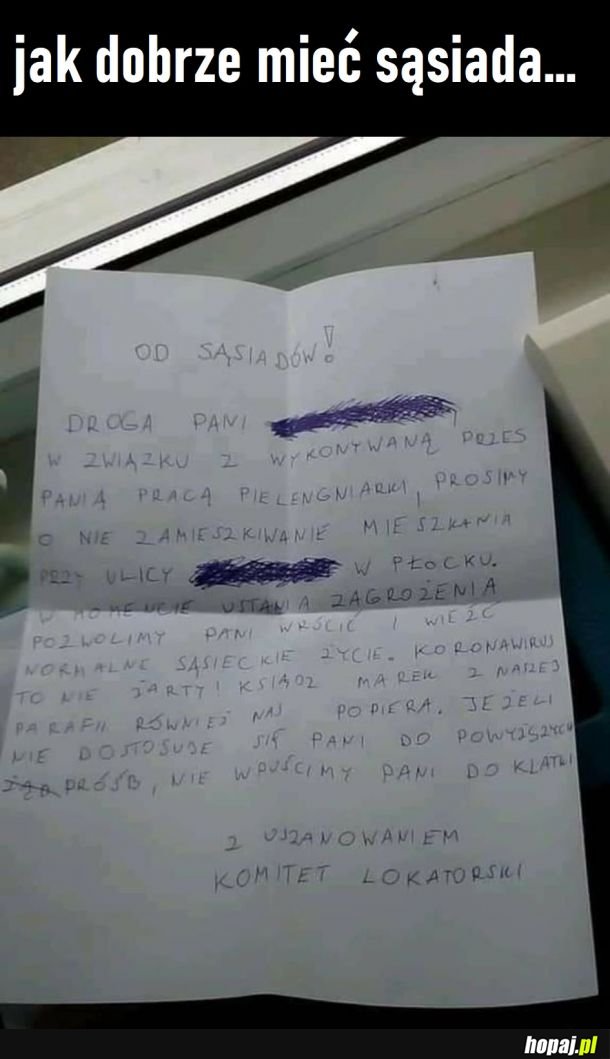 jak dobrze mieć sąsiada...
OD SĄSIADÓW!
DROGA PANI
W ZWIĄZKU Z WYKONYWANĄ PRZES
PANIĄ PRACĄ PIELENGNIARKI, PROSIMY
O NIE ZAMIESZKIWANIE MIESZKANIA
PRZY ULICY W PŁOCKU.
W MOMENCIE USTANIA ZAGROŻENIA
POZWOLIMY PANI WRÓCIĆ I WIEŹĆ
NORMALNE SĄSIECKIE ŻYCIE. KORONAWIRUS
TO NIE ŻARTY! KSIĄDZ MAREK Z NASZEJ
PARAFII RÓWNIEŻ NAS POPIERA. JEŻELI
NIE DOSTOSUJE SIĘ PANI DO POWYŻSZYCH
PRÓŚB, NIE WPUŚCIMY PANI DO KLATKI
Z USZANOWANIEM
KOMITET LOKATORSKI
hopaj.pl